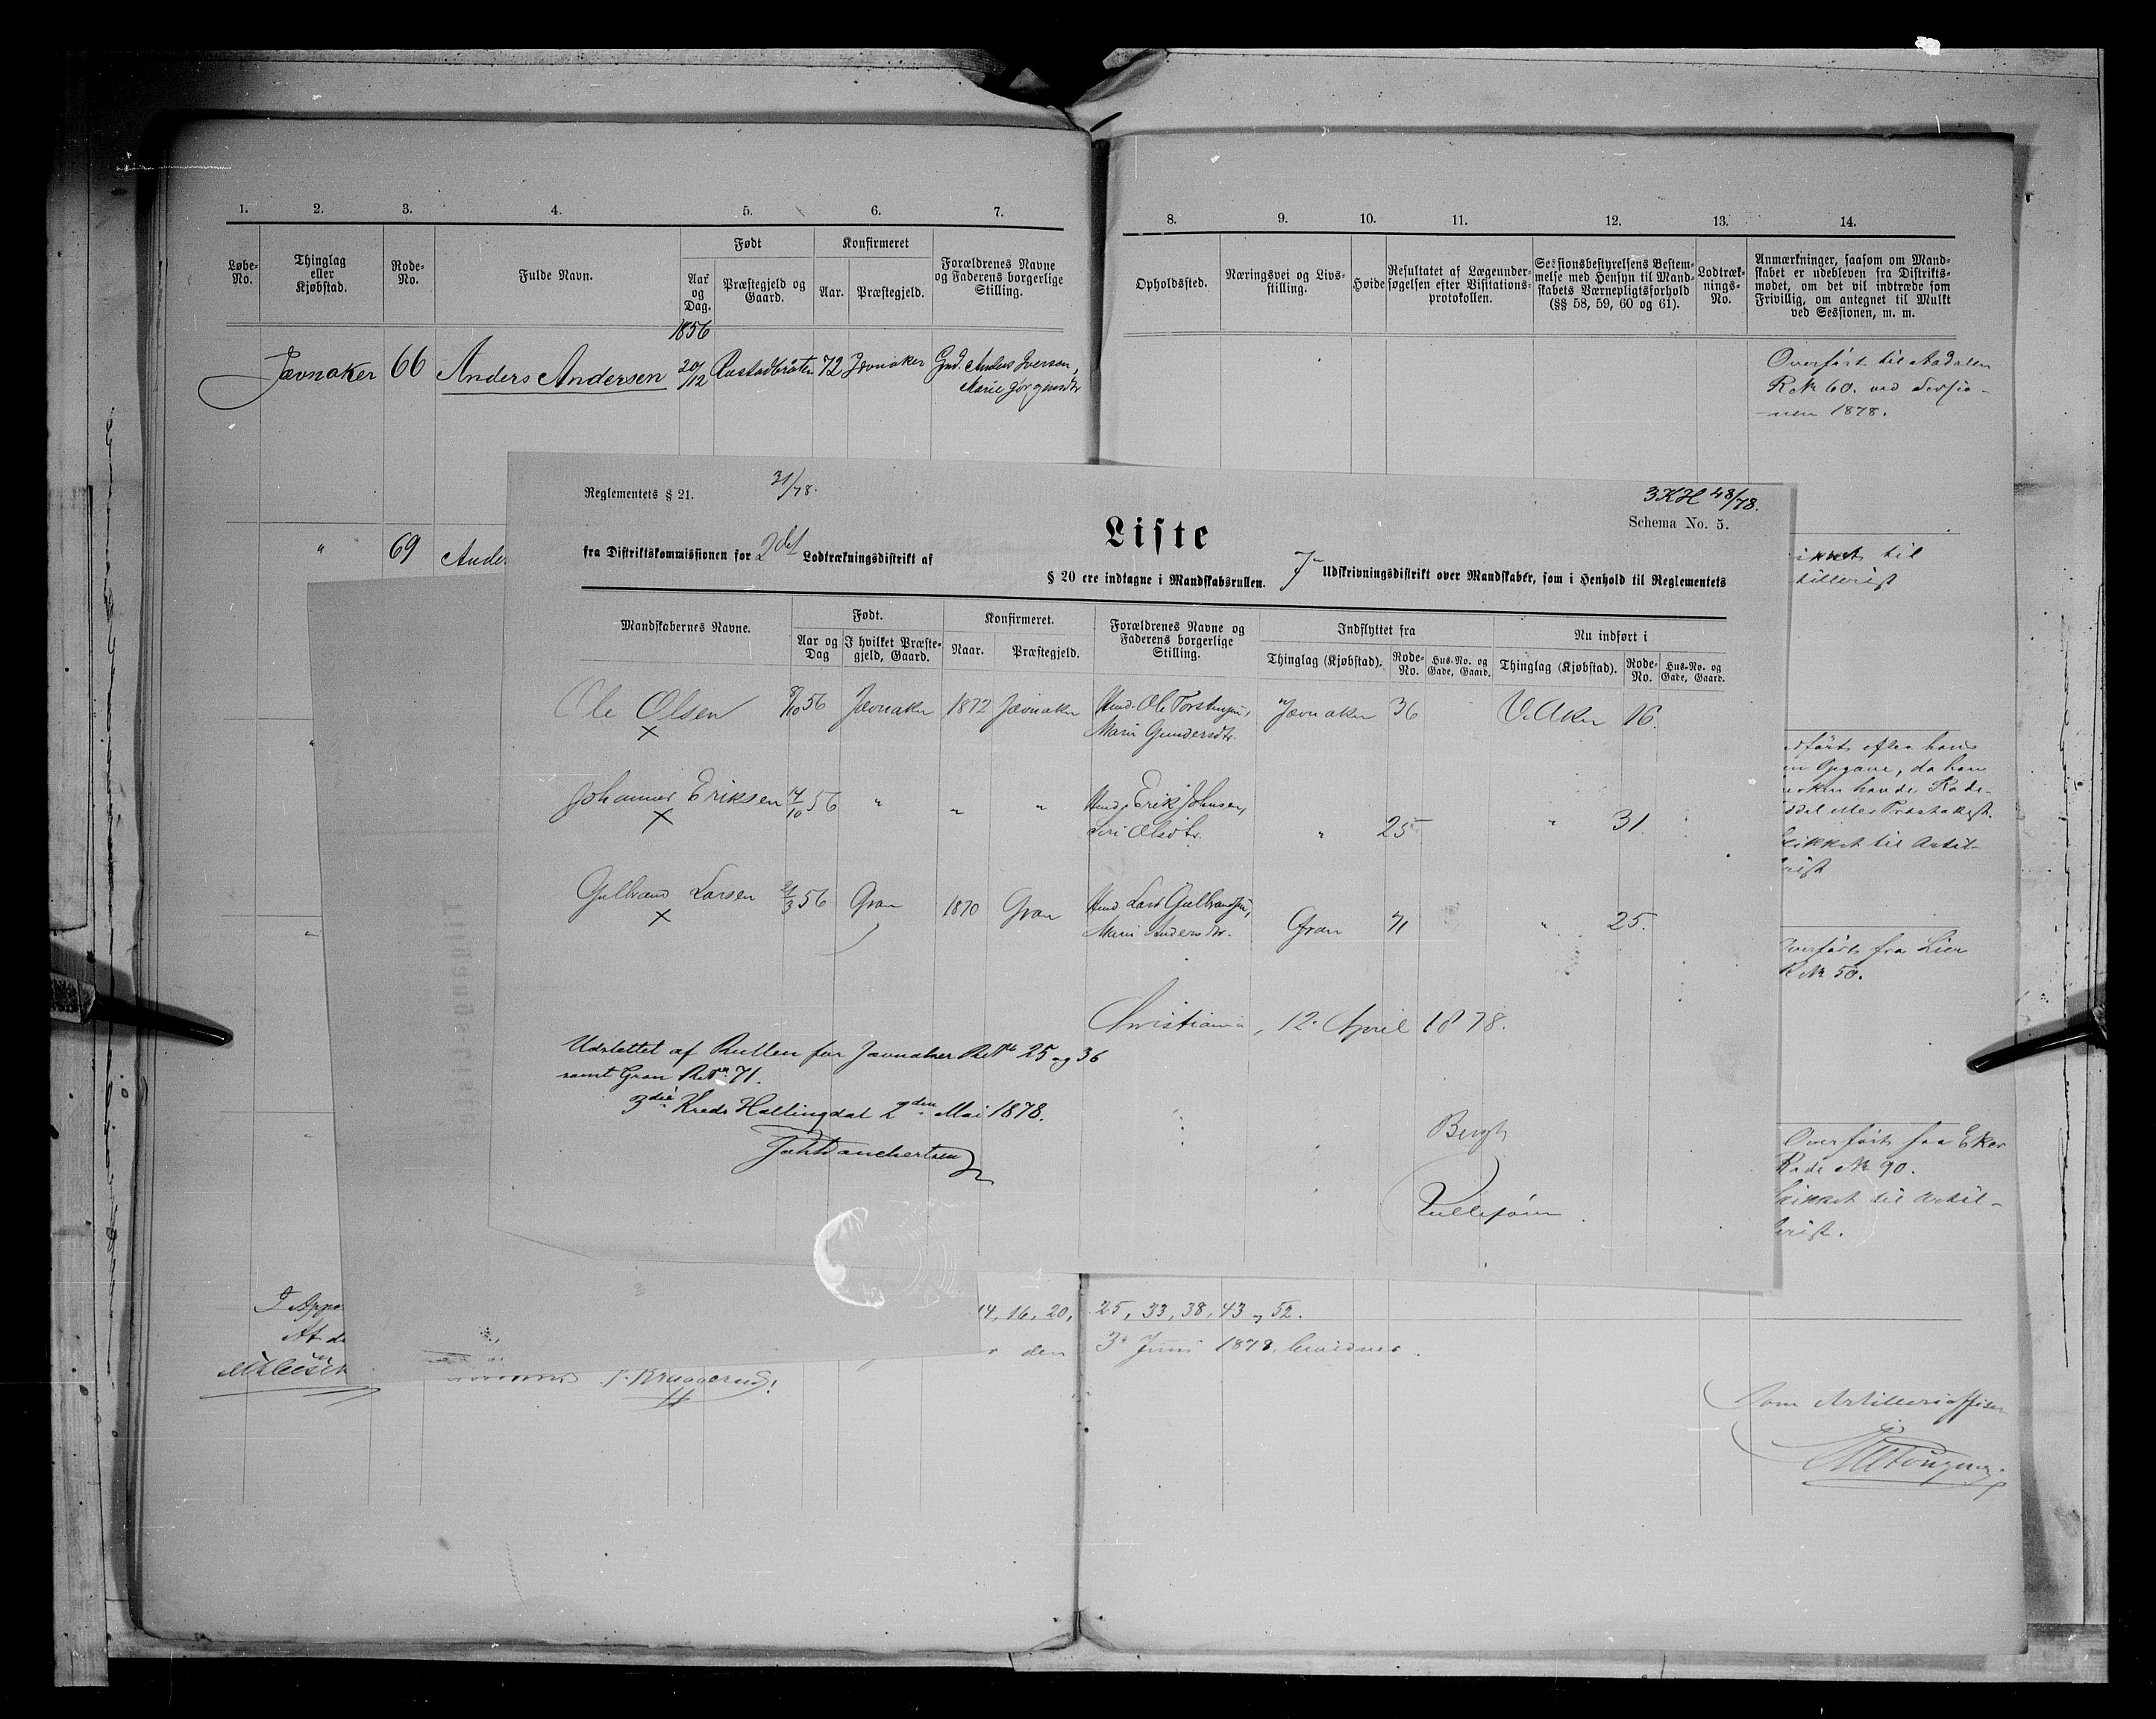 1. 2. 3. 4. 5. 6. 7.
Løbe-No. Thinglag eller Kjøbstad. Rode-No. Fulde Navn. Født Aar og Dag. Præstegjeld og Gaard. Konfirmeret Aar. Præstegjeld. Forældrenes Navne og Faderens borgerlige Stilling.
1856
Jævnaker 66 Anders Andersen 20/12 Rustadbråten 72 Jævnaker Gmd. Anders Iversen,
Marie Jørgensdtr
" 69 Ander
8. 9. 10. 11. 12. 13. 14.
Opholdssted. Næringsvei og Livsstilling. Høide Resultatet af Lægeundersøgelsen efter Visitationsprotokollen. Sessionsbestyrelsens Bestemmelse med Hensyn til Mandskabets Værnepligtsforhold (§§ 58, 59, 60 og 61). Lodtræknings-No. Anmærkninger, saasom om Mandskabet er udebleven fra Distriktsmødet, om det vil indtræde som Frivillig, om antegnet til Mulkt ved Sessionen, m. m.
Overført til Aadalen
R. No 60. ved Sessio-
nen 1878.
til
tillerist
dført efter hans
Opgave, da han
havde Rode-
eller Præsteattest.
ikket til Artil-
rist
Overført fra Lier
R No 50.
Overført fra Eker
Rode No 90.
Skikket til Artil-
lerist.
Reglementets § 21. 31/78. 3KH 48/78.
Schema No. 5.
Liste
fra Distriktskommissionen for 2det Lodtrækningsdistrikt af 7de Udskrivningsdistrikt over Mandskaber, som i Henhold til Reglementets
§ 20 ere indtagne i Mandskabsrullen.
Mandskabernes Navne. Født. Aar og Dag I hvilket Præstegjeld, Gaard. Konfirmeret. Naar. Præstegjeld. Forældrenes Navne og Faderens borgerlige Stilling. Indflyttet fra Thinglag (Kjøbstad). Rode-No. Hus-No. og Gade, Gaard. Nu indført i Thinglag (Kjøbstad). Rode-No. Hus-No. og Gade, Gaard.
Ole Olsen 8/10 56 Jævnaker 1872 Jævnaker Hmd. Ole Torstensen, Jævnaker 36 V. Aker 16.
x Marie Gundersdtr.
Johannes Eriksen 14/10 56 " " " Hmd. Erik Johnsen,
x Siri Olsdtr. " 25 " 31.
Gulbrand Larsen 21/3 56 Gran 1870 Gran Hmd Lars Gulbrandsen,
x Mari Andersdtr. Gran 71 " 25.
Christiania, 12. April 1878.
Udslettet af Rullen for Jævnaker R.No 25 og 36
samt Gran R.No 71.
3die Kreds Hallingdal 2den Mai 1878.
Bergh
14, 16, 20, 25, 33, 38, 43 og 52.
den 3 Juni 1878
At d
Som Artilleriofficer